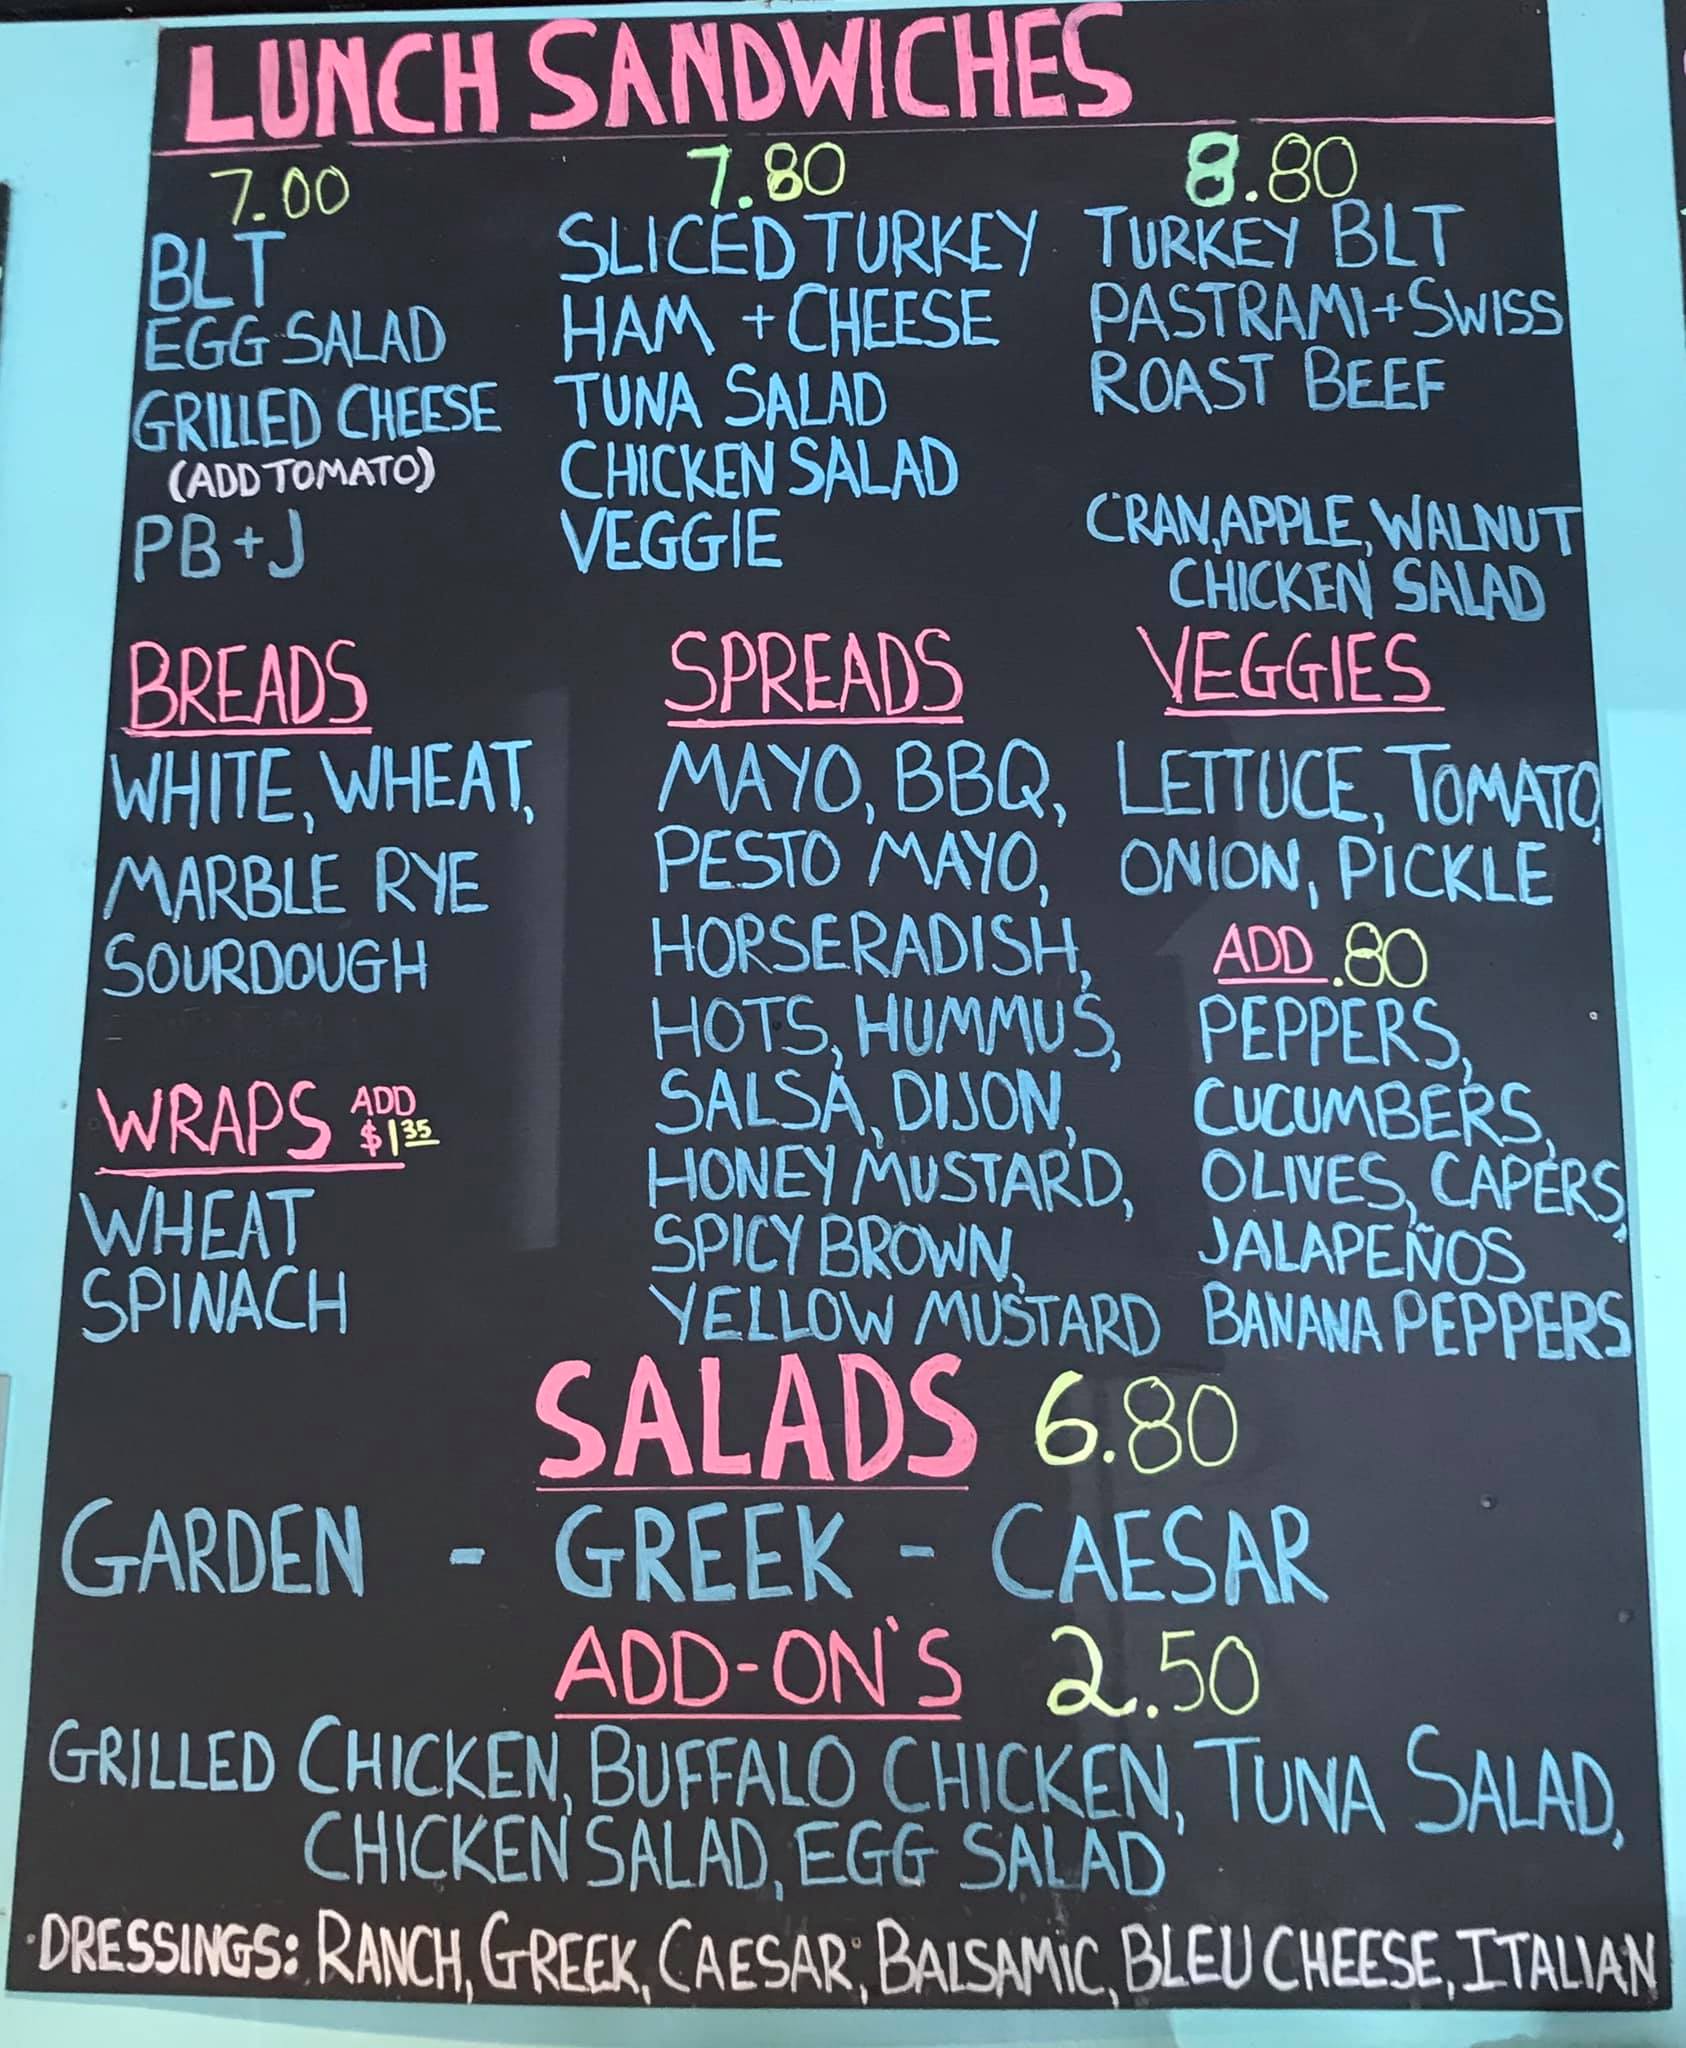 LUNCH SANDWICHES
7.00
BLT
EGG SALAD
GRILLED CHEESE
(ADD TOMATO)
PB + J
7.80
SLICED TURKEY
HAM + CHEESE
TUNA SALAD
CHICKEN SALAD
VEGGIE
8.80
TURKEY BLT
PASTRAMI + SWISS
ROAST BEEF
CRAN, APPLE, WALNUT
CHICKEN SALAD
BREADS
WHITE, WHEAT,
MARBLE RYE
SOURDOUGH
WRAPS ADD $1.35
WHEAT
SPINACH
SPREADS
MAYO, BBQ,
PESTO MAYO,
HORSERADISH,
HOTS, HUMMUS,
SALSA, DIJON,
HONEY MUSTARD,
SPICY BROWN,
YELLOW MUSTARD
VEGGIES
LETTUCE, TOMATO,
ONION, PICKLE
ADD .80
PEPPERS,
CUCUMBERS,
OLIVES, CAPERS,
JALAPEÑOS
BANANA PEPPERS
SALADS 6.80
GARDEN - GREEK - CAESAR
ADD-ON'S 2.50
GRILLED CHICKEN, BUFFALO CHICKEN, TUNA SALAD,
CHICKEN SALAD, EGG SALAD
DRESSINGS: RANCH, GREEK, CAESAR, BALSAMIC, BLEU CHEESE, ITALIAN